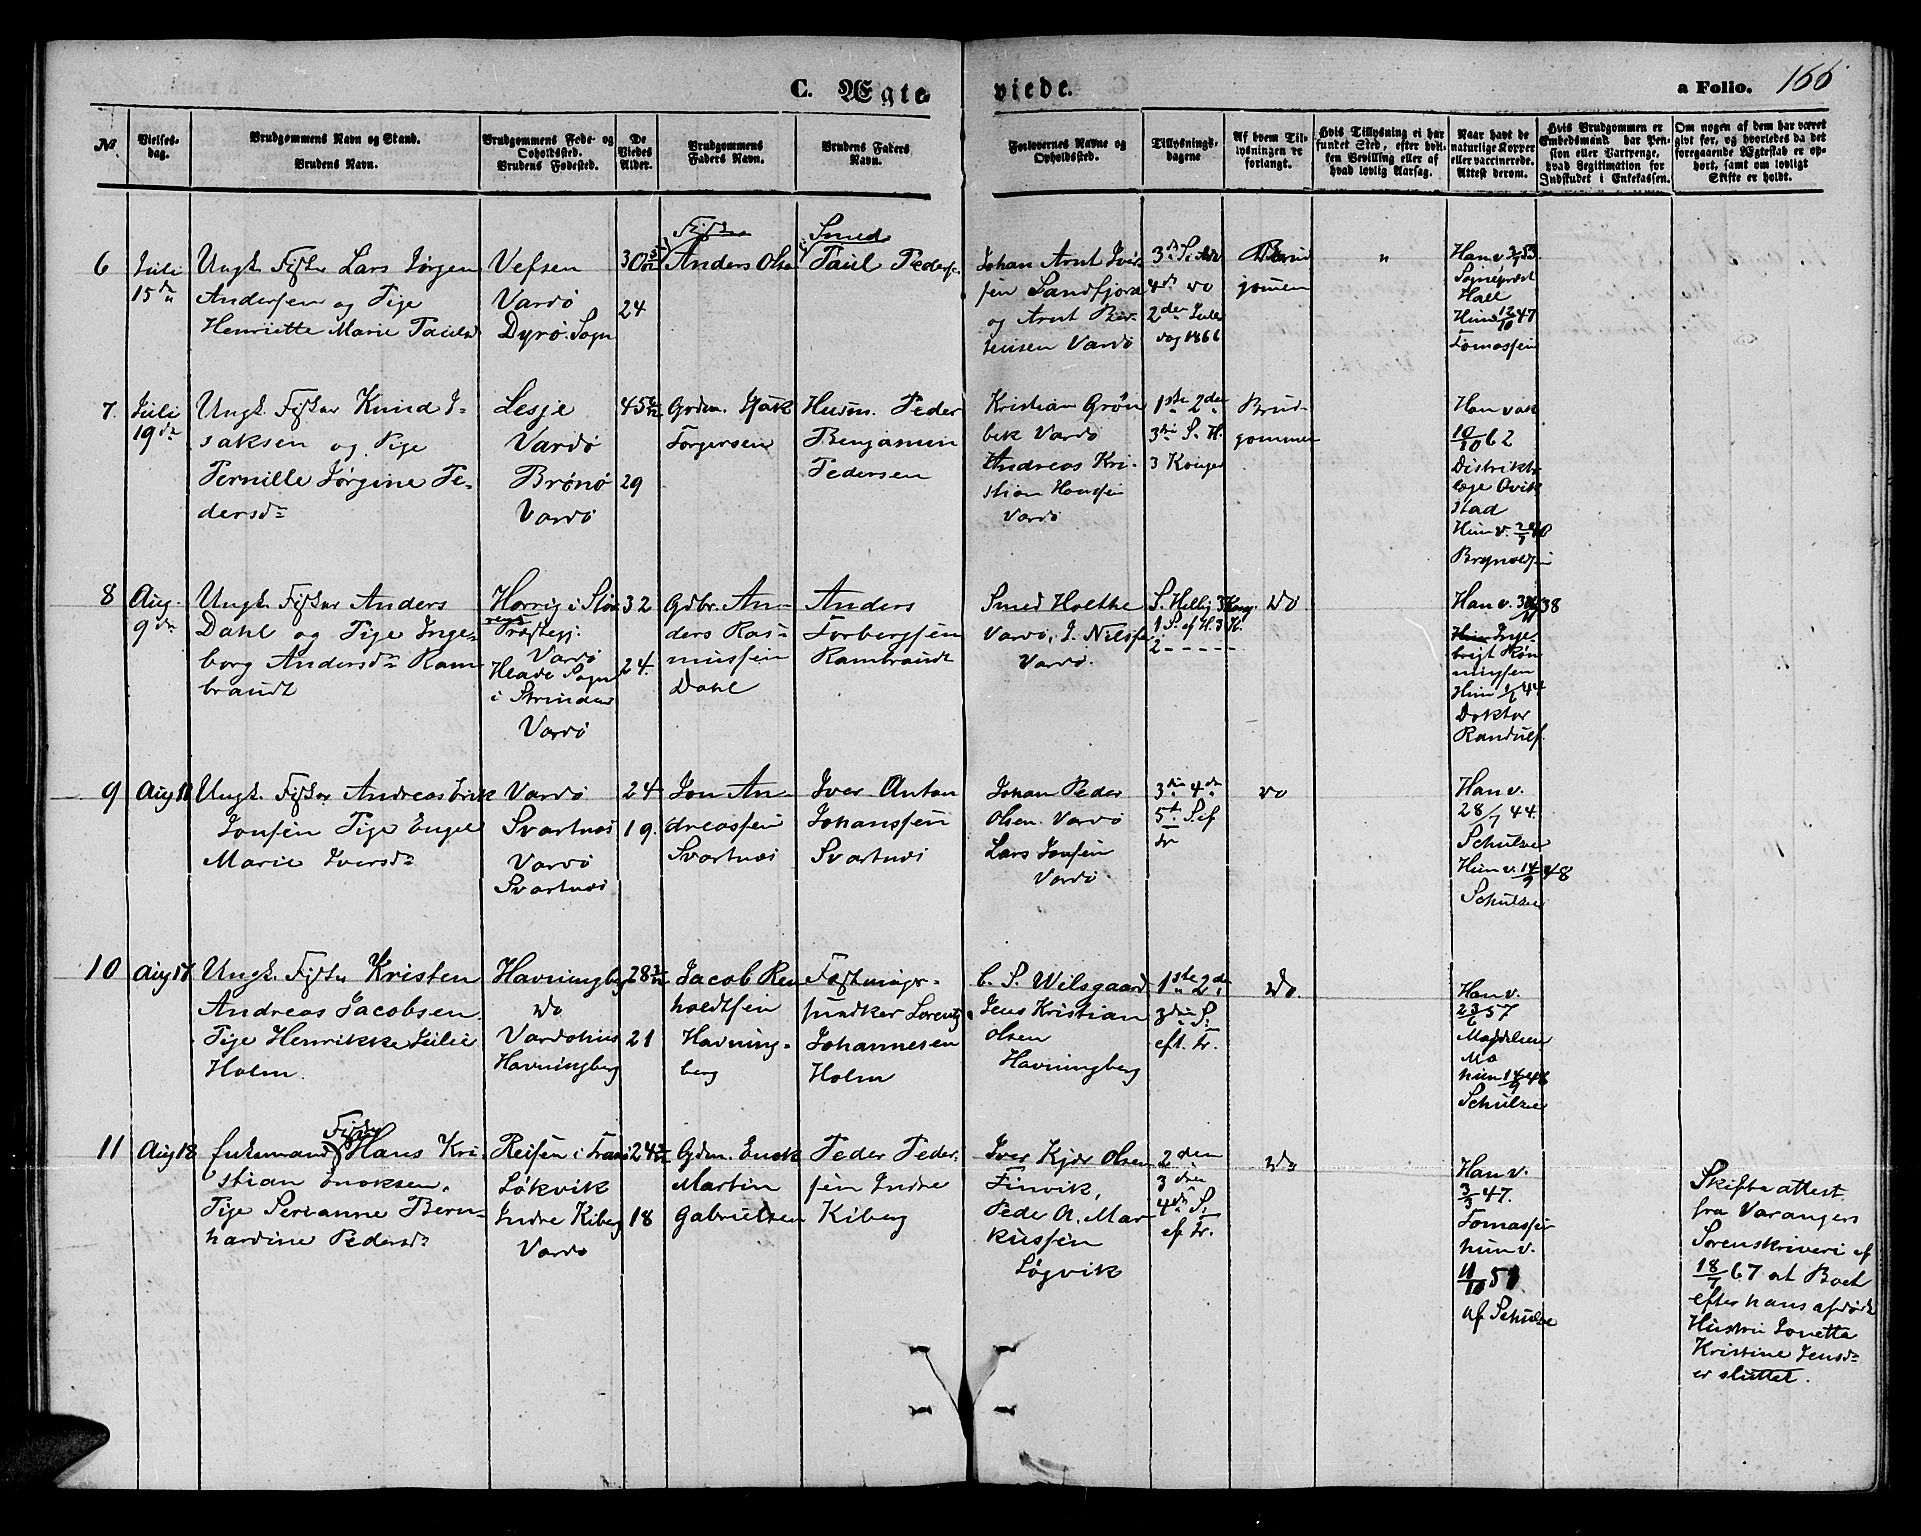 C. Ægte viede.
a Folio. 166
№
Vielses-
dag.
Brudgommens Navn og Stand.
Brudens Navn.
Brudgommens Føde- og
Opholdssted.
Brudens Fødested.
De
Viedes
Alder.
Brudgommens
Faders Navn.
Brudens Faders
Navn.
Forlovernes Navne og
Opholdssted.
Tillysnings-
dagene
Af hvem Til-
lysningen er
forlangt.
Hvis Tillysning ei har
fundet Sted, efter hvil-
ken Bevilling eller af
hvad lovlig Aarsag.
Naar havt de
naturlige Kopper
eller vaccinerede.
Attest derom.
Hvis Brudgommen er
Embedsmand, har Pen-
sion eller Vartpenge,
hvad Legitimation for
Indskudet i Enkekassen.
Om nogen af dem har været
gift før, og hvorledes da det
foregaaende Ægteskab er op-
hørt, samt om lovligt
Skifte er holdt.
6
Juli
15de
Ungk. Fisker Lars Jørgen
Andersen og Pige
Henriette Marie Paulsd
Vefsen
Vardø
Dyrø Sogn
30
24
Fisker
Anders Olsen
Smed
Paul Peders.
Johan Arnt Iver
sen Sandfjord
og Arnt Ber-
tensen Vardø
4de do
2den Jule
dag 1866
Brud
gomen
"
Han v.
Sogneprest
Hall
Hun 12/10 47
Tomassen
7.
Juli
19de
Ungk. Fisker Knud I-
saksen og Pige
Pernille Jørgine Pe-
dersdr
Lesje
Vardø
Brønø
Vardø
45
29
Gdm. Isak
Torgersen
Husm. Peder
Benjamin
Pedersen
Kristian Grøn
bek Vardø
Andreas Kri-
stian Hansen
Vardø
1ste 2den
3die S. H.
3 Konger
Brud-
gommen
Han vak
10/10 62
Distrikts
læge Qvik
stad
Hun v.
Brynoldsen
8
Aug.
9de
Ungk. Fisker Anders
Dahl og Pige Inge-
borg Andersdr Ram
brandt
Horrig i Stør
rens
Præstegj.
Vardø
Hlade Sogn
i Strinden
Vardø
32
24.
Gdbr. An-
ders Ras-
mussen
Dahl
Anders
Torbergsen
Rambrandt
Smed Holthe
Vardø, J. Nilssen
Vardø.
S. Hellig 3 Kong.
1 S. ef H. 3 K.
2 - - - - -
do
Han v.
Inge
brigt Røn
ningsen
Hun 1/6 44
Doktor
Randulf.
9
Aug 11
Ungk. Fisker Andreas Erik
Jonsen Pige Engel
Marie Iversdr
Vardø
Svartnæs
Vardø
Svartnæs
24
19.
Jon An-
dreassen
Svartnæs
Iver Anton
Johanssen
Svartnæs
Johan Peder
Olsen. Vardø
Lars Jonsen
Vardø
3die 4de
5te S ef
tr
do
Han v.
28/7 44.
Schulze
Hun v. 14/9 48
Schulze
10
Aug 17
Ungk. Fisker Kristen
Andreas Jacobsen
Pige Henrikke Julie
Holm.
Havningberg
do
Vardøhus
Havningberg
28
21
Jacob Ren
holdtsen
Havning-
berg
Fæstnings-
hundker Lorentz
Johannesen
Holm
C. S. Wilsgaard
Jens Kristian
Olsen
Havningberg
1ste 2den
3die S.
eft. tr.
do.
Han v.
23/6 57
Mo
hun 14/9 46
Schulze
11
Aug 18
Enkemand Fisker Hans Kri-
stian Enoksen,
Pige Perianne Bern-
hardine Pedersdr
Reisen i Trani
Løkvik
Indre Kiberg
Vardø
24
18
Gdm. Enok
Martin
Gabrielsen
Peder Peder-
sen Indre
Kiberg
Iver Kjær Olsen
Finvik,
Peder A. Mar
kussen
Løgvik
2den
3die
4de S.
ef tr.
do
Han v.
3/3 47.
Tomassen
hun v.
11/10 51
af Schulze
Skifteattest
fra Varangers
Sorenskriveri af
18/7 67 at Boet
efter hans afdøde
Hustru Jonetta
Kristine Jensdr
er sluttet.